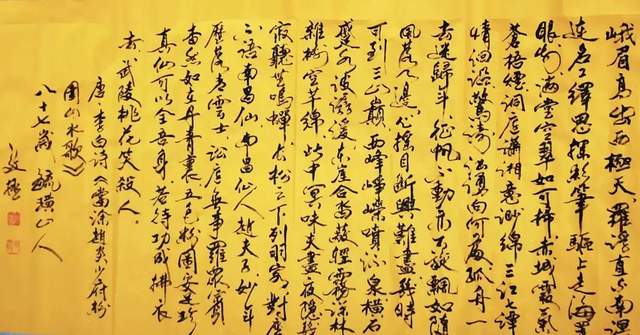 峨眉高出西極天羅浮直與南溟
連名工繹思揮彩筆驅山走海置
眼前滿堂空翠如可掃赤城霞氣
蒼梧煙洞庭瀟湘意渺綿三江七澤
情洄沿驚濤洶湧向何處孤舟一
去迷歸年征帆不動亦不旋飄如隨
風落天邊心搖目斷興難盡幾時
可到三山巔西峰崢嶸噴流泉橫石
蹙水波潺湲東崖合沓蔽輕霧深林
雜樹空芊綿此中冥昧失晝夜隱幾
寂聽無鳴蟬長松之下列羽客對座
不語南昌仙南昌仙人趙夫子妙年
歷落青雲士訟庭無事羅衆賓
杳然如在丹青裏五色粉圖安足珍
真仙可以全吾身若待功成拂衣
去武陵桃花笑殺人
唐李白詩《當塗趙炎少府粉
圖山水歌》
八十七歲 毓璜山人